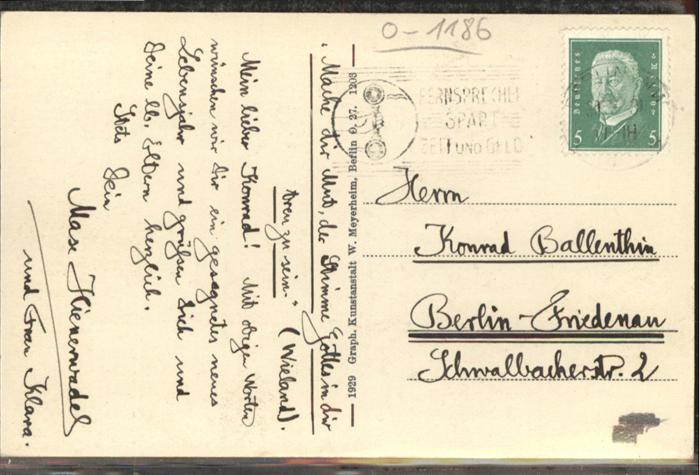 O-1186
„Mache dir Mut, der Stimme Gottes in dir
treu zu sein.“ (Wieland).
Mein lieber Konrad! Mit obigen Worten
wünschen wir Dir ein gesegnetes neues
Lebensjahr und grüßen Dich und
Deine lb. Eltern herzlich.
Stets Dein
Max Hienerwadel
und Frau Klara.
1929 Graph. Kunstanstalt W. Meyerheim, Berlin O. 27. 1208
FERNSPRECHEN
SPART
ZEIT UND GELD
Deutsches Reich
5 5
Herrn
Konrad Ballenthin
Berlin-Friedenau
Schwalbacherstr. 2